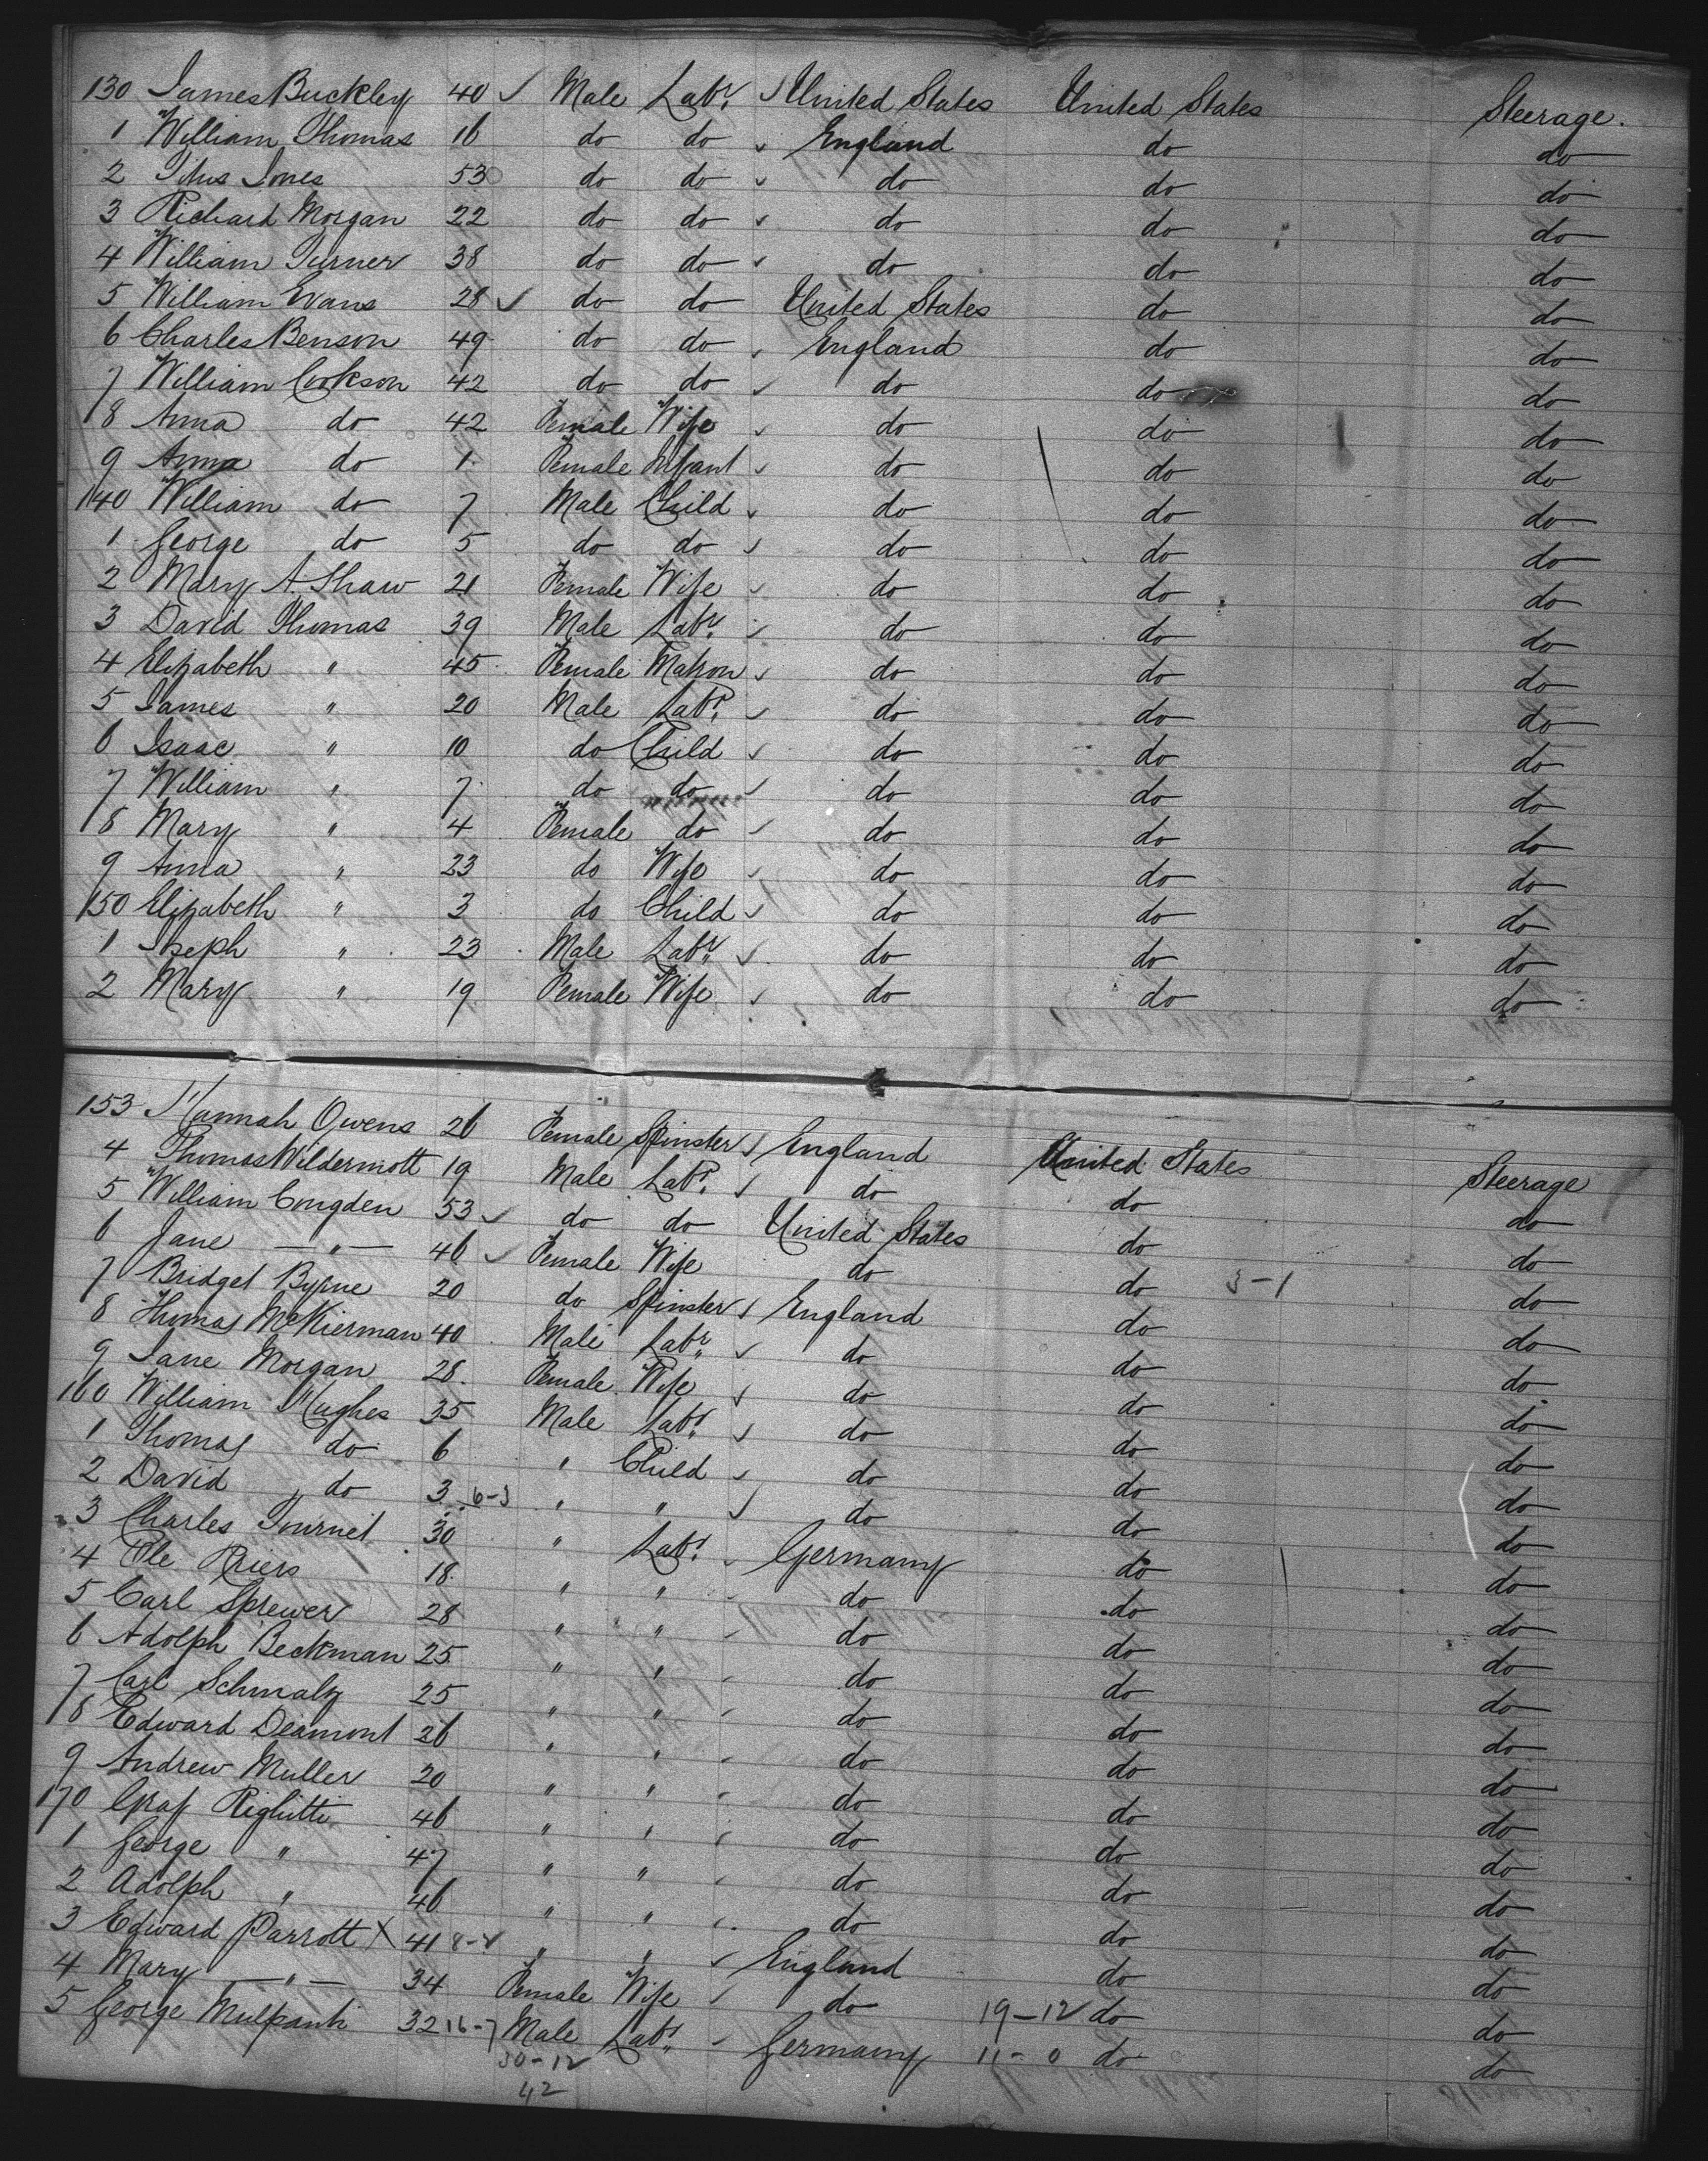 130 James Buckley 40 ✓ Male Labr. ✓ United States United States Steerage.
1 William Thomas 16 do do ✓ England do do
2 Titus Jones 53 do do ✓ do do do
3 Richard Morgan 22 do do ✓ do do do
4 William Turner 38 do do ✓ do do do
5 William Evans 28 ✓ do do United States do do
6 Charles Benson 49 do do ✓ England do do
7 William Cookson 42 do do ✓ do do do
8 Anna do 42 Female Wife ✓ do do do
9 Anna do 1 Female Infant ✓ do do do
140 William do 7 Male Child ✓ do do do
1 George do 5 do do ✓ do do do
2 Mary A. Shaw 21 Female Wife ✓ do do do
3 David Thomas 39 Male Labr. ✓ do do do
4 Elizabeth " 45 Female Matron ✓ do do do
5 James " 20 Male Labr. ✓ do do do
6 Isaac " 10 do Child ✓ do do do
7 William " 7 do do ✓ do do do
8 Mary " 4 Female do ✓ do do do
9 Anna " 23 do Wife ✓ do do do
150 Elizabeth " 3 do Child ✓ do do do
1 Joseph " 23 Male Labr. ✓ do do do
2 Mary " 19 Female Wife ✓ do do do
153 Hannah Owens 26 Female Spinster ✓ England United States Steerage
4 Thomas Wildermott 19 Male Labr. ✓ do do do
5 William Congden 53 ✓ do do United States do do
6 Jane — " — 46 ✓ Female Wife do do 3-1 do
7 Bridget Byrne 20 do Spinster ✓ England do do
8 Thomas McKierman 40 Male Labr. ✓ do do do
9 Jane Morgan 28 Female Wife ✓ do do do
160 William Hughes 35 Male Labr. ✓ do do do
1 Thomas do 6 " Child ✓ do do do
2 David do 3 6-3 " " ✓ do do do
3 Charles Tournet 30 " Labr. ✓ Germany do do
4 Ole Rriers 18 " " do do do
5 Carl Sprewer 28 " " do do do
6 Adolph Beckman 25 " " do do do
7 Carl Schmalz 25 " " do do do
8 Edward Deamont 26 " " do do do
9 Andrew Muller 20 " " do do do
170 Righitti 46 " " do do do
1 George " 47 " " do do do
2 Adolph " 46 " " do do do
3 Edward Parrott X 41 " " ✓ England do do
4 Mary — " — 34 Female Wife ✓ do 19-12 do do
5 George 32 16-7 Male Labr. Germany 11-0 do do
30-12
42